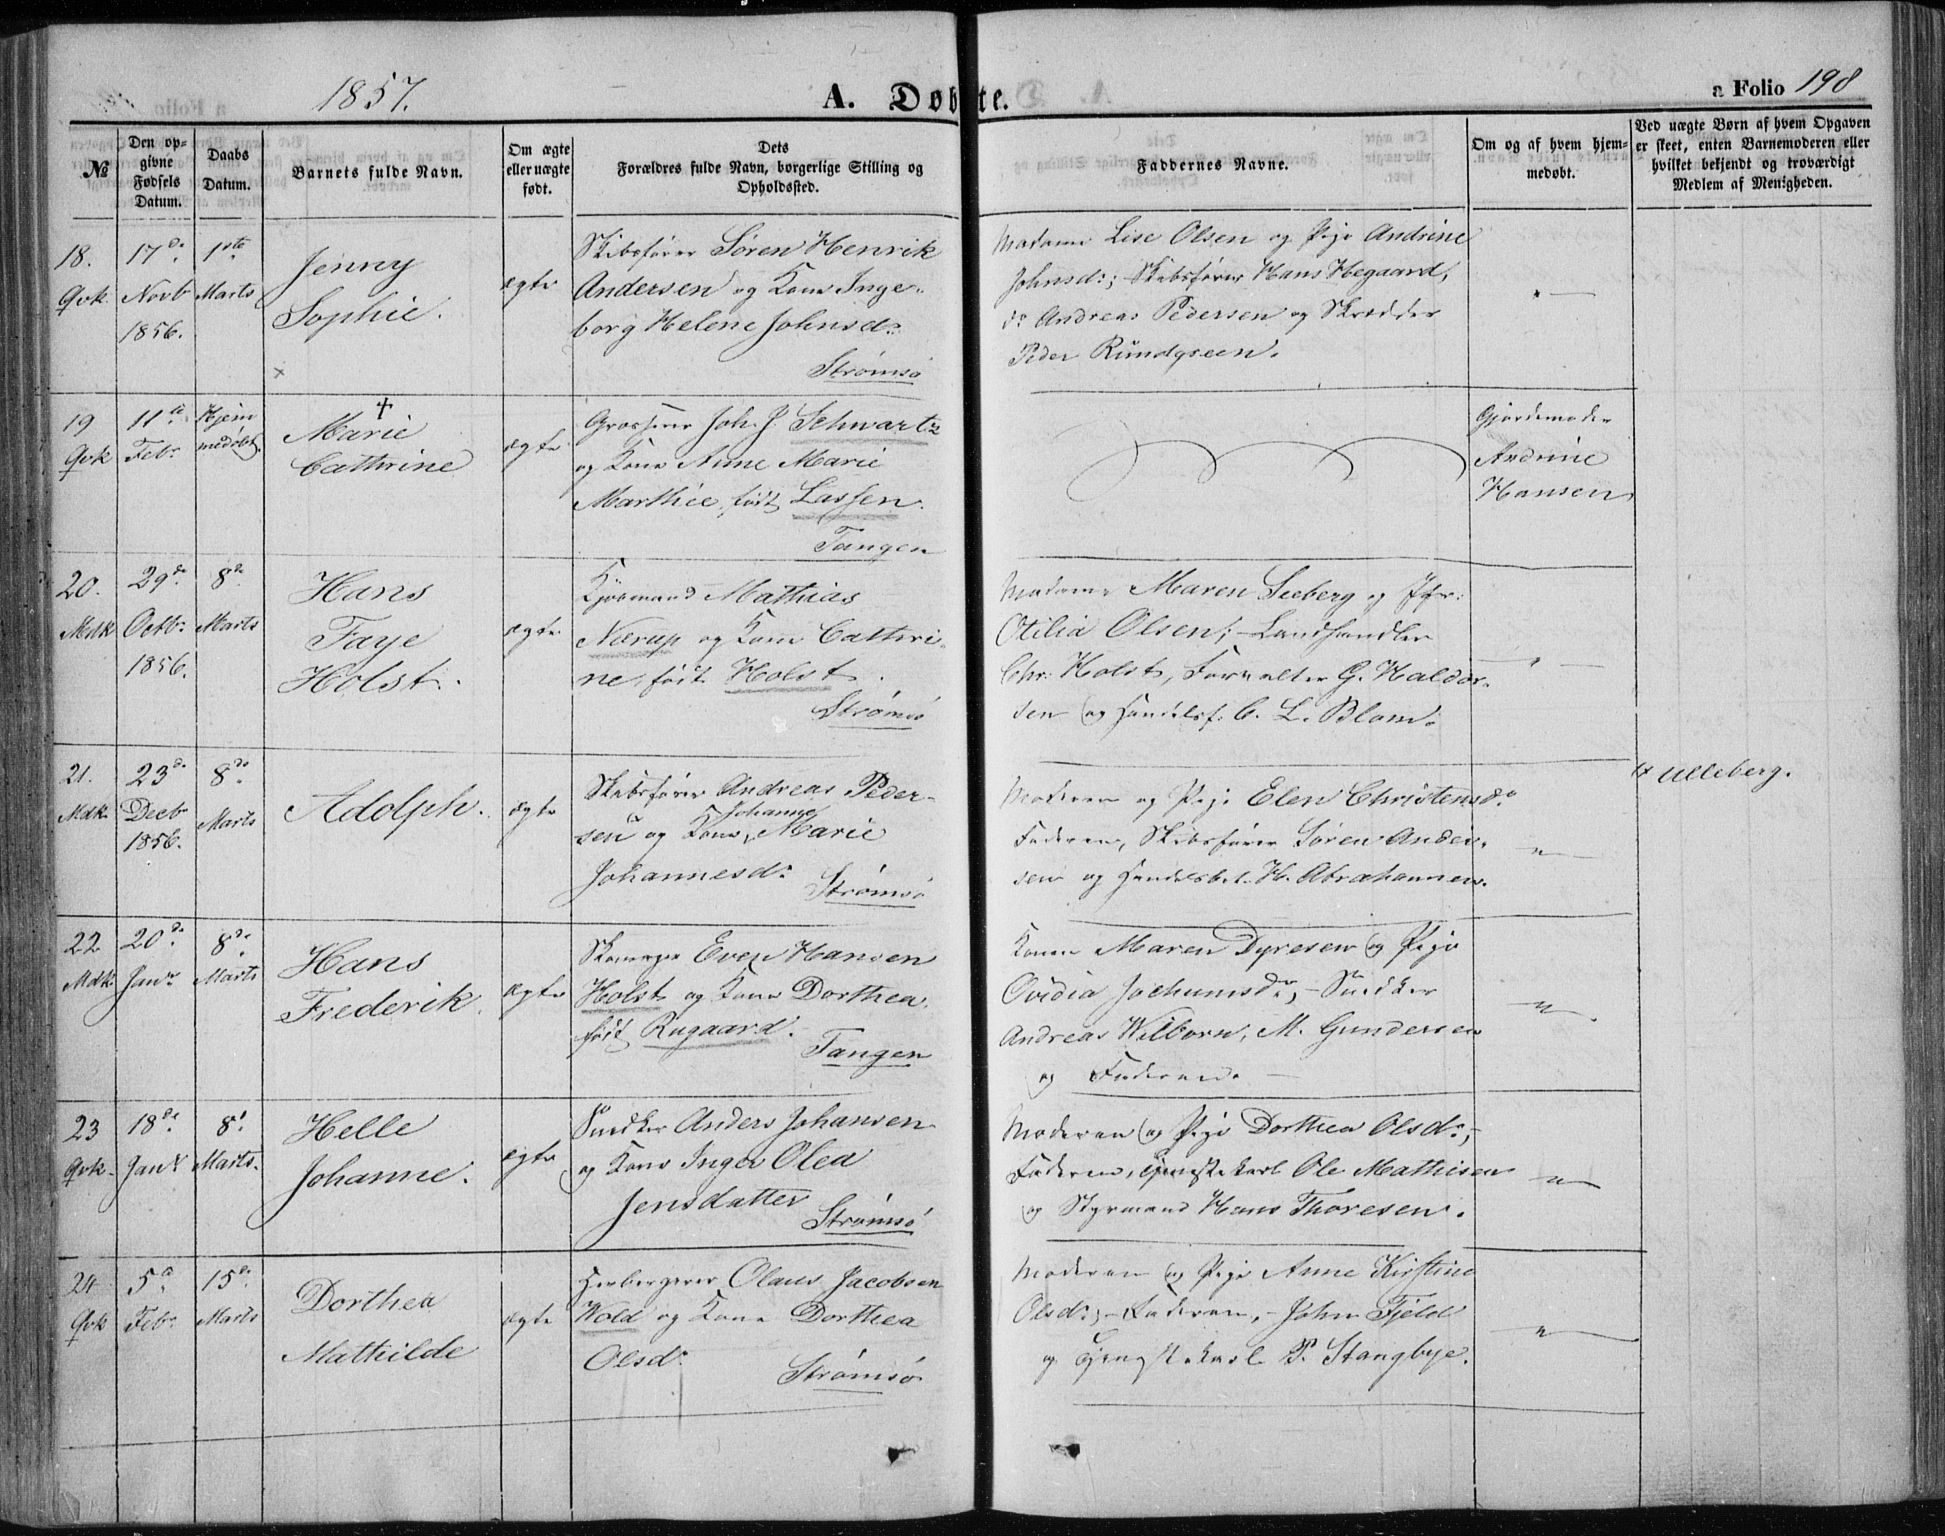 1857.
A. Døbte.
a Folio 198
№
Den opgivne Fødsels Datum.
Daabs Datum.
Barnets fulde Navn.
Om ægte eller uægte født.
Dets Forældres fulde Navn, borgerlige Stilling og Opholdssted.
Faddernes Navne.
Om og af hvem hjemmedøbt.
Ved uægte Børn af hvem Opgaven er skeet, enten Barnemoderen eller hvilket bekjendt og troværdigt Medlem af Menigheden.
18. Qvk
17de Novb 1856.
1ste Marts
Jenny
Sophie.
ægte
Skibsfører Søren Henrik
Andersen og Kone Inge-
borg Helene Johnsd:
Strømsø
Madame Lise Olsen og Pige Andrine
Johnsd:; Skibsfører Hans Hegaard,
do Andreas Pedersen og Skrædder
Peder Rundgreen.
19 Qvk
11te Febr.
Hjemmedøbt.
Marie
Cathrine
ægte
Grosserer Joh. J. Schwartz
og Kone Anne Marie
Marthie, født Lassen.
Tangen
Gjordemoder
Andrine
Hansen
20. Mdk
29de Octbr. 1856.
8de Marts
Hans
Faye
Holst.
ægte
Kjøbmand Mathias
Nærup og Kone Cathri-
ne, født Holst.
Strømsø
Madame Maren Seeberg og Jfr.
Otilia Olsen; Landhandler
Chr. Holst, Forvalter G. Haldor-
sen og Handelsf. C. L. Blom.
21. Mdk.
23de Decb 1856.
8de Marts
Adolph.
ægte
Skibsfører Andreas Peder-
sen og Kone Johanne Marie
Johannesd:
Strømsø
Moderen og Pige Elen Christensd:
Faderen, Skibsfører Søren Ander-
sen og Handelsbet. H. Abrahamsen.
Ulleberg.
22 Mdk
20de Janr
8de Marts
Hans
Frederik.
ægte
Skomager Even Hansen
Holst og Kone Dorthea,
født Rugaard.
Tangen
Konen Maren Dyresen og Pige
Ovidia Jochumsdr, - Snedker
Andreas Wilborn, M. Gundersen
og Faderen.
23 Qvk.
18de Janr
8de Marts.
Helle
Johanne.
ægte
Snedker Anders Johansen
og Kone Inger Olea
Jensdatter
Strømsø
Moderen og Pige Dorthea Olsd:,
Faderen, Tjenestekarl Ole Mathisen
og Styrmand Hans Thoresen.
24 Qvk
5te Febr.
15de Marts
Dorthea
Mathilde
ægte
Herbergerer Olaus Jacobsen
Wold og Kone Dorthea
Olsd:
Strømsø
Moderen og Pige Anne Kirstine
Olsd:, - Faderen, - John Fjeld
og Tjenestekarl P. Stangbye.